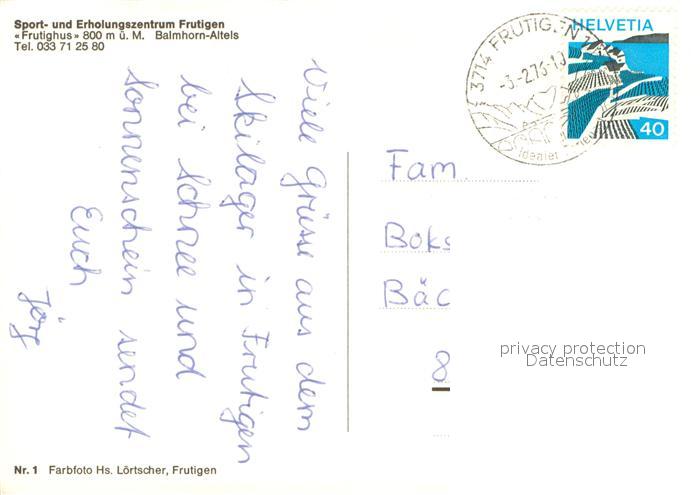 Sport- und Erholungszentrum Frutigen
«Frutighus» 800 m ü. M. Balmhorn-Altels
Tel. 033 71 25 80
Viele Grüsse aus dem
Skilager in Frutigen
bei Schnee und
Sonnenschein sendet
Euch
Jörg
HELVETIA
40
3714 FRUTIGEN
Idealer
Fam.
Boks
Bäc
8
privacy protection
Datenschutz
Nr. 1 Farbfoto Hs. Lörtscher, Frutigen